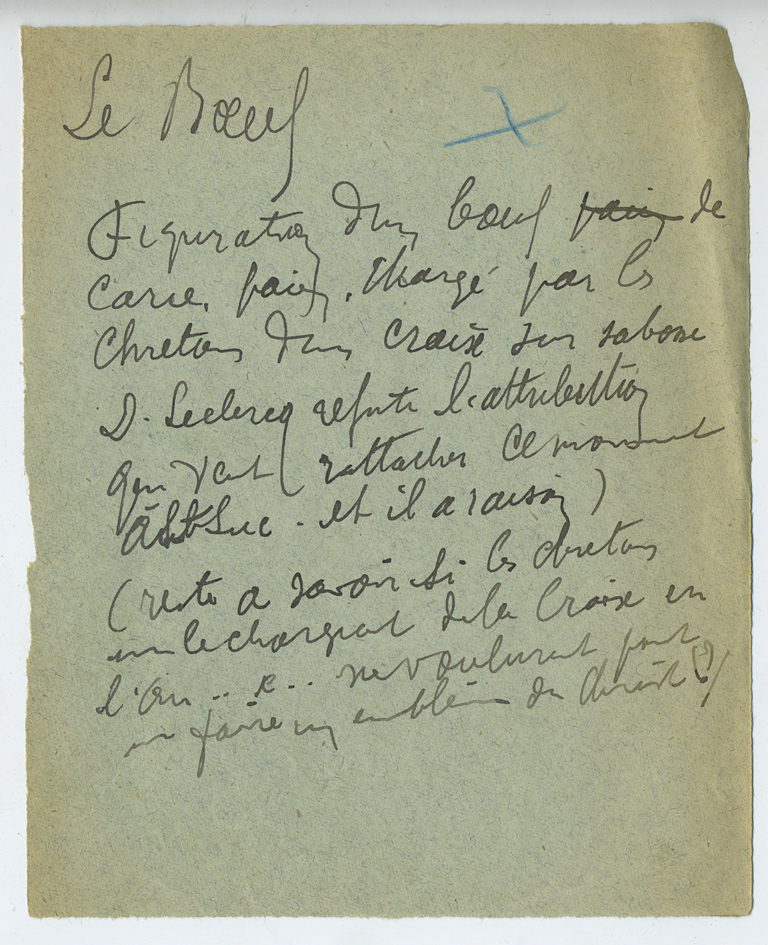 Le Bœuf
Figuration d'un bœuf païen de
païen, chargé par les
chretiens d'un croix sur sa
D. Leclercq refute l'attribution
qui veut rattacher ce monument
à St Luc - et il a raison)
(reste a savoir si les chretiens
en le chargeant de la Croix en
l'an .. ne voulurent point
en faire un emblème du Christ ?)